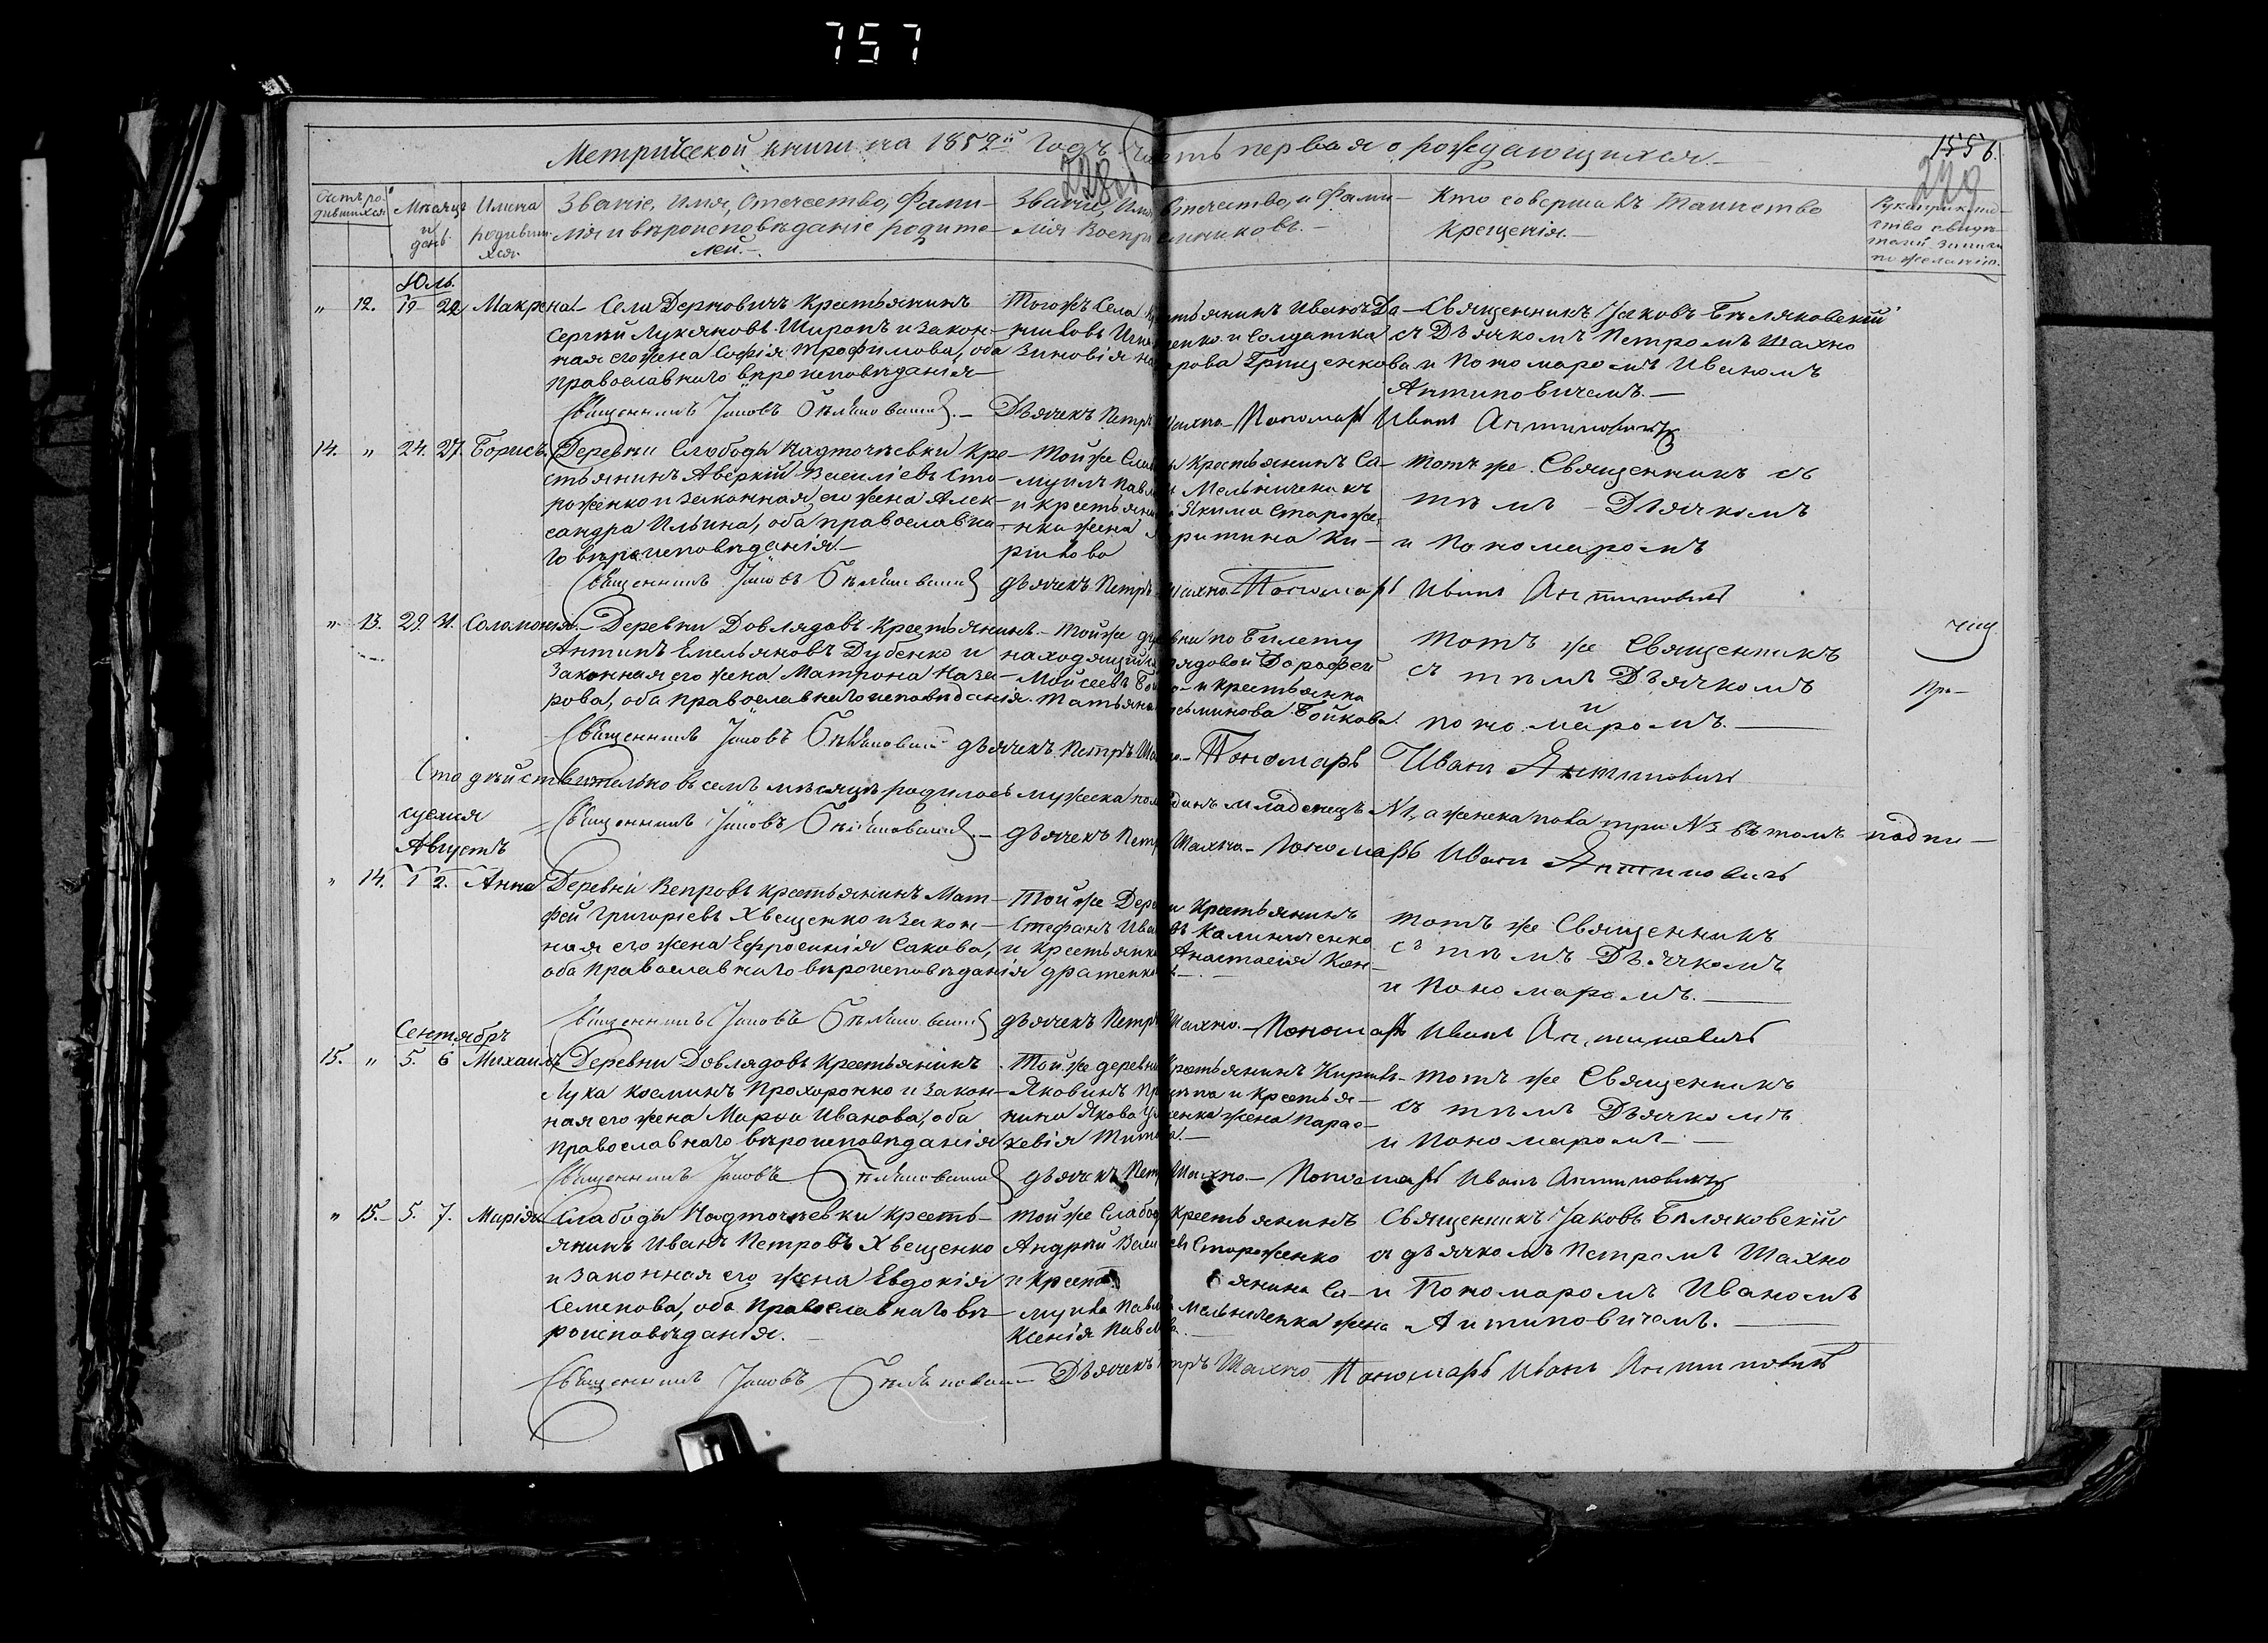 757
Метрической книги на 1852й Годъ Часть первая о рождающихся.
1556.
228об
229
Счетъ ро-
дившихся
Мѣсяцъ
и
день.
Имена
родивши-
хся.
Званіе, Имя, Отечество, Фами-
лія и вѣроисповѣданіе родите-
лей.
Званіе, Имя Отечество, и Фами-
лія Воспріемниковъ.
Кто совершалъ Таинство
Крещенія.
Рукоприкла-
ство свидѣ-
телей записи
по желанію.
Юль.
" 12. 19 22 Макрена Села Дерновичъ Крестьянинъ
Сергѣй Лукяновъ Широпъ и закон-
ная его жена Софія Трофимова, оба
православнаго вѣроисповѣданія
Тогожъ Села Крестьянинъ Иванъ Да-
ниловъ и Солдатка
Зиновія Грищенкова
Священникъ Іаковъ Бѣляковскій
съ Дьячкомъ Петромъ Махно
и Пономаромъ Иваномъ
Антиповичемъ.
Священникъ Іаковъ Бѣляковскій. Дьячекъ Петръ Махно Пономарь Иванъ Антиповичъ
14. " 24. 27. Борисъ Деревни Слободы Надточѣевки Кре-
стьянинъ Аверкій Василіевъ Сто-
роженко и законная его жена Алек-
сандра Ильина, оба православна-
го вѣроисповѣданія.
Тойже Слободы Крестьянинъ Са-
муилъ Павловъ Мельниченокъ
и крестьянина Якима Стороже-
нка жена Харитина Ки-
рілова
Тотъ же Священникъ съ
тѣмъ Дьячкомъ
и Пономаромъ
Священникъ Іаковъ Бѣляковскій дьячекъ Петръ Махно. Пономарь Иванъ Антиповичъ
" 13. 29. 31. Соломонія. Деревни Довлядовъ Крестьянинъ
Антипъ Емельяновъ Дубенко и
законная его жена Матрона Наза-
рова, оба православнаго исповѣданія.
Тойже деревни по Билету
находящийся рядовой Дорофей
Моисеевъ Бойко и крестьянка
Татьяна Косьминова Бойкова.
Тотъ же Священникъ
съ тѣмъ Дьячкомъ
и
пономаромъ.
Священникъ Іаковъ Бѣляковскій дьячекъ Петръ Махно. Пономарь Иванъ Антиповичъ
Что дѣйствительно въ семъ мѣсяцѣ родилось мужеска пола одинъ младенецъ №1, а женска пола три №3 въ томъ подпи-
суемся Священникъ Іаковъ Бѣляковскій. дьячекъ Петръ Махно. Пономарь Иванъ Антиповичъ
Августъ
" 14. 1 2. Анна Деревни Вепровъ крестьянинъ Мат-
фей Григоріевъ Хвещенко и закон-
ная его жена Ефросинія Сакова,
оба Православнаго вѣроисповѣданія
Тойже Деревни Крестьянинъ
Стефанъ Ивановъ Калиниченко
и Крестьянка Анастасія Кон-
дратенкова
Тотъ же Священникъ
съ тѣмъ Дьячкомъ
и Пономаромъ.
Священникъ Іаковъ Бѣляковскій дьячекъ Петръ Махно. Пономарь Иванъ Антиповичъ
Сентябръ
15. " 5. 6 Михаилъ Деревни Довлядовъ Крестьянинъ
Лука Косминъ Прохоронко и закон-
ная его жена Марѳа Иванова, оба
Православнаго вѣроисповѣданія
Той же деревни Крестьянинъ Кирилъ
Яковинъ и Крестья-
нина Якова жена Парас-
кевія Титова.
Тотъ же Священникъ
съ тѣмъ Дьячкомъ
и Пономаромъ
Священникъ Іаковъ Бѣляковскій дьячекъ Петръ Махно Пономарь Иванъ Антиповичъ
" 15. 5. 7. Марія Слабоды Надточѣевки Кресть-
янинъ Иванъ Петровъ Хвещенко
и законная его жена Евдокія
Семенова, оба Православнаго вѣ-
роисповѣданія.
Тойже Слабоды Крестьянинъ
Андрей Василіевъ Стороженко
и Крестьянина Са-
муила Павлова Мельниченка жена
Ксенія Павлова.
Священникъ Іаковъ Бѣляковскій
съ дьячкомъ Петромъ Махно
и Пономаромъ Иваномъ
Антиповичемъ.
Священникъ Іаковъ Бѣляковскій Дьячекъ Петръ Махно Пономарь Иванъ Антиповичъ